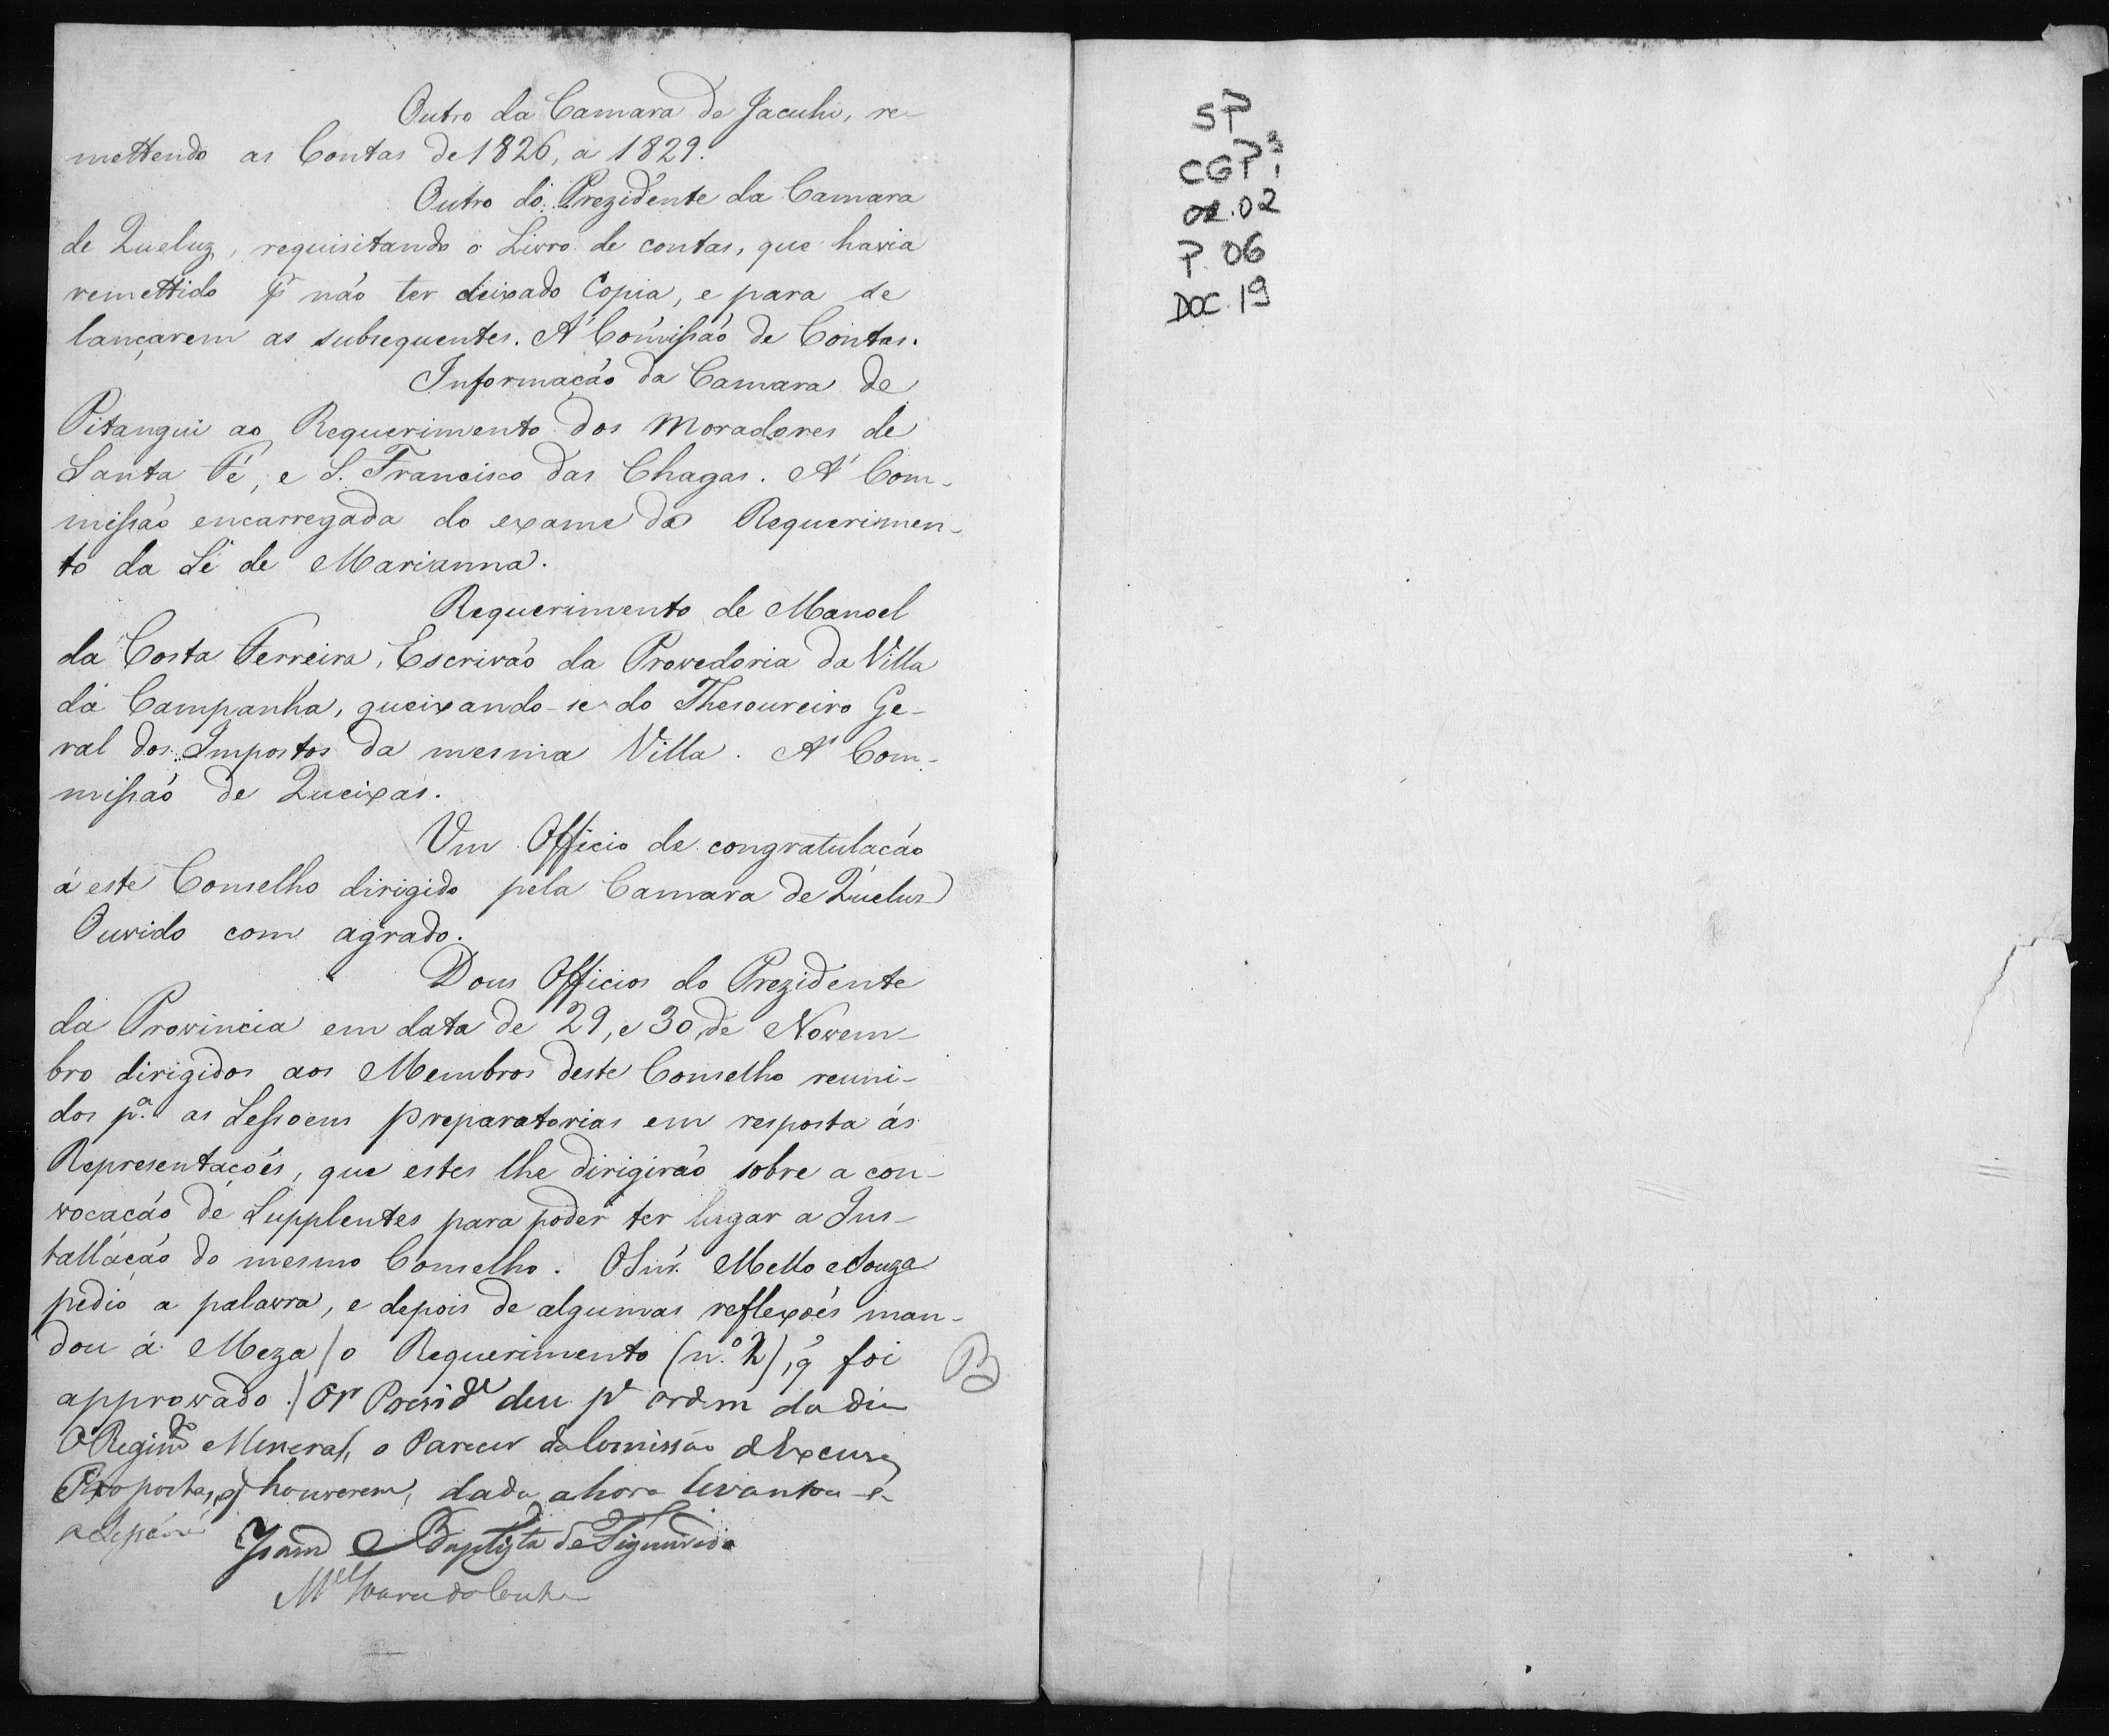 Outro da Camara de Jacuhi, re-
mettendo as Contas de 1826, a 1829.
Outro do Prezidente da Camara
de Queluz, requisitando o Livro de contas, que havia
remettido p não ter deixado Copia, e para se
lançarem as subsequentes. A' Comissão de Contas.
Informação da Camara de
Pitangui ao Requerimento dos Moradores de
Santa Fé, e S. Francisco das Chagas. A' Com-
missão encarregada do exame do Requerimen-
to da Sé de Marianna.
Requerimento de Manoel
da Costa Ferreira, Escrivão da Provedoria da Villa
da Campanha, queixando-se do Thesoureiro Ge-
ral dos Impostos da mesma Villa. A' Com-
missão de Queixas.
Um Officio de congratulação
á este Conselho dirigido pela Camara de Queluz
Ouvido com agrado.
Dous Officios do Prezidente
da Provincia em data de 29, e 30 de Novem-
bro dirigidos aos Membros deste Conselho reuni-
dos pª. as Sessoens preparatorias em resposta ás
Representações, que estes lhe dirigirão sobre a con-
vocação de Supplentes para poder ter lugar a Ins-
tallação do mesmo Conselho. O Snr. Mello e Souza
pedio a palavra, e depois de algumas reflexões man-
dou á Meza / o Requerimento (n.º 2), q̃ foi
approvado. / O Sr Presid.e deu pr ordem do dia
O Regim.to Mineral, o Parecer da Comissão d
Propostas, q houverem, dada a hora levantou-se
a Sessão
Baptista de Figueiredo
M.el Soares do Couto
B
SP
CGP³ 1
02
P. 06
DOC. 19